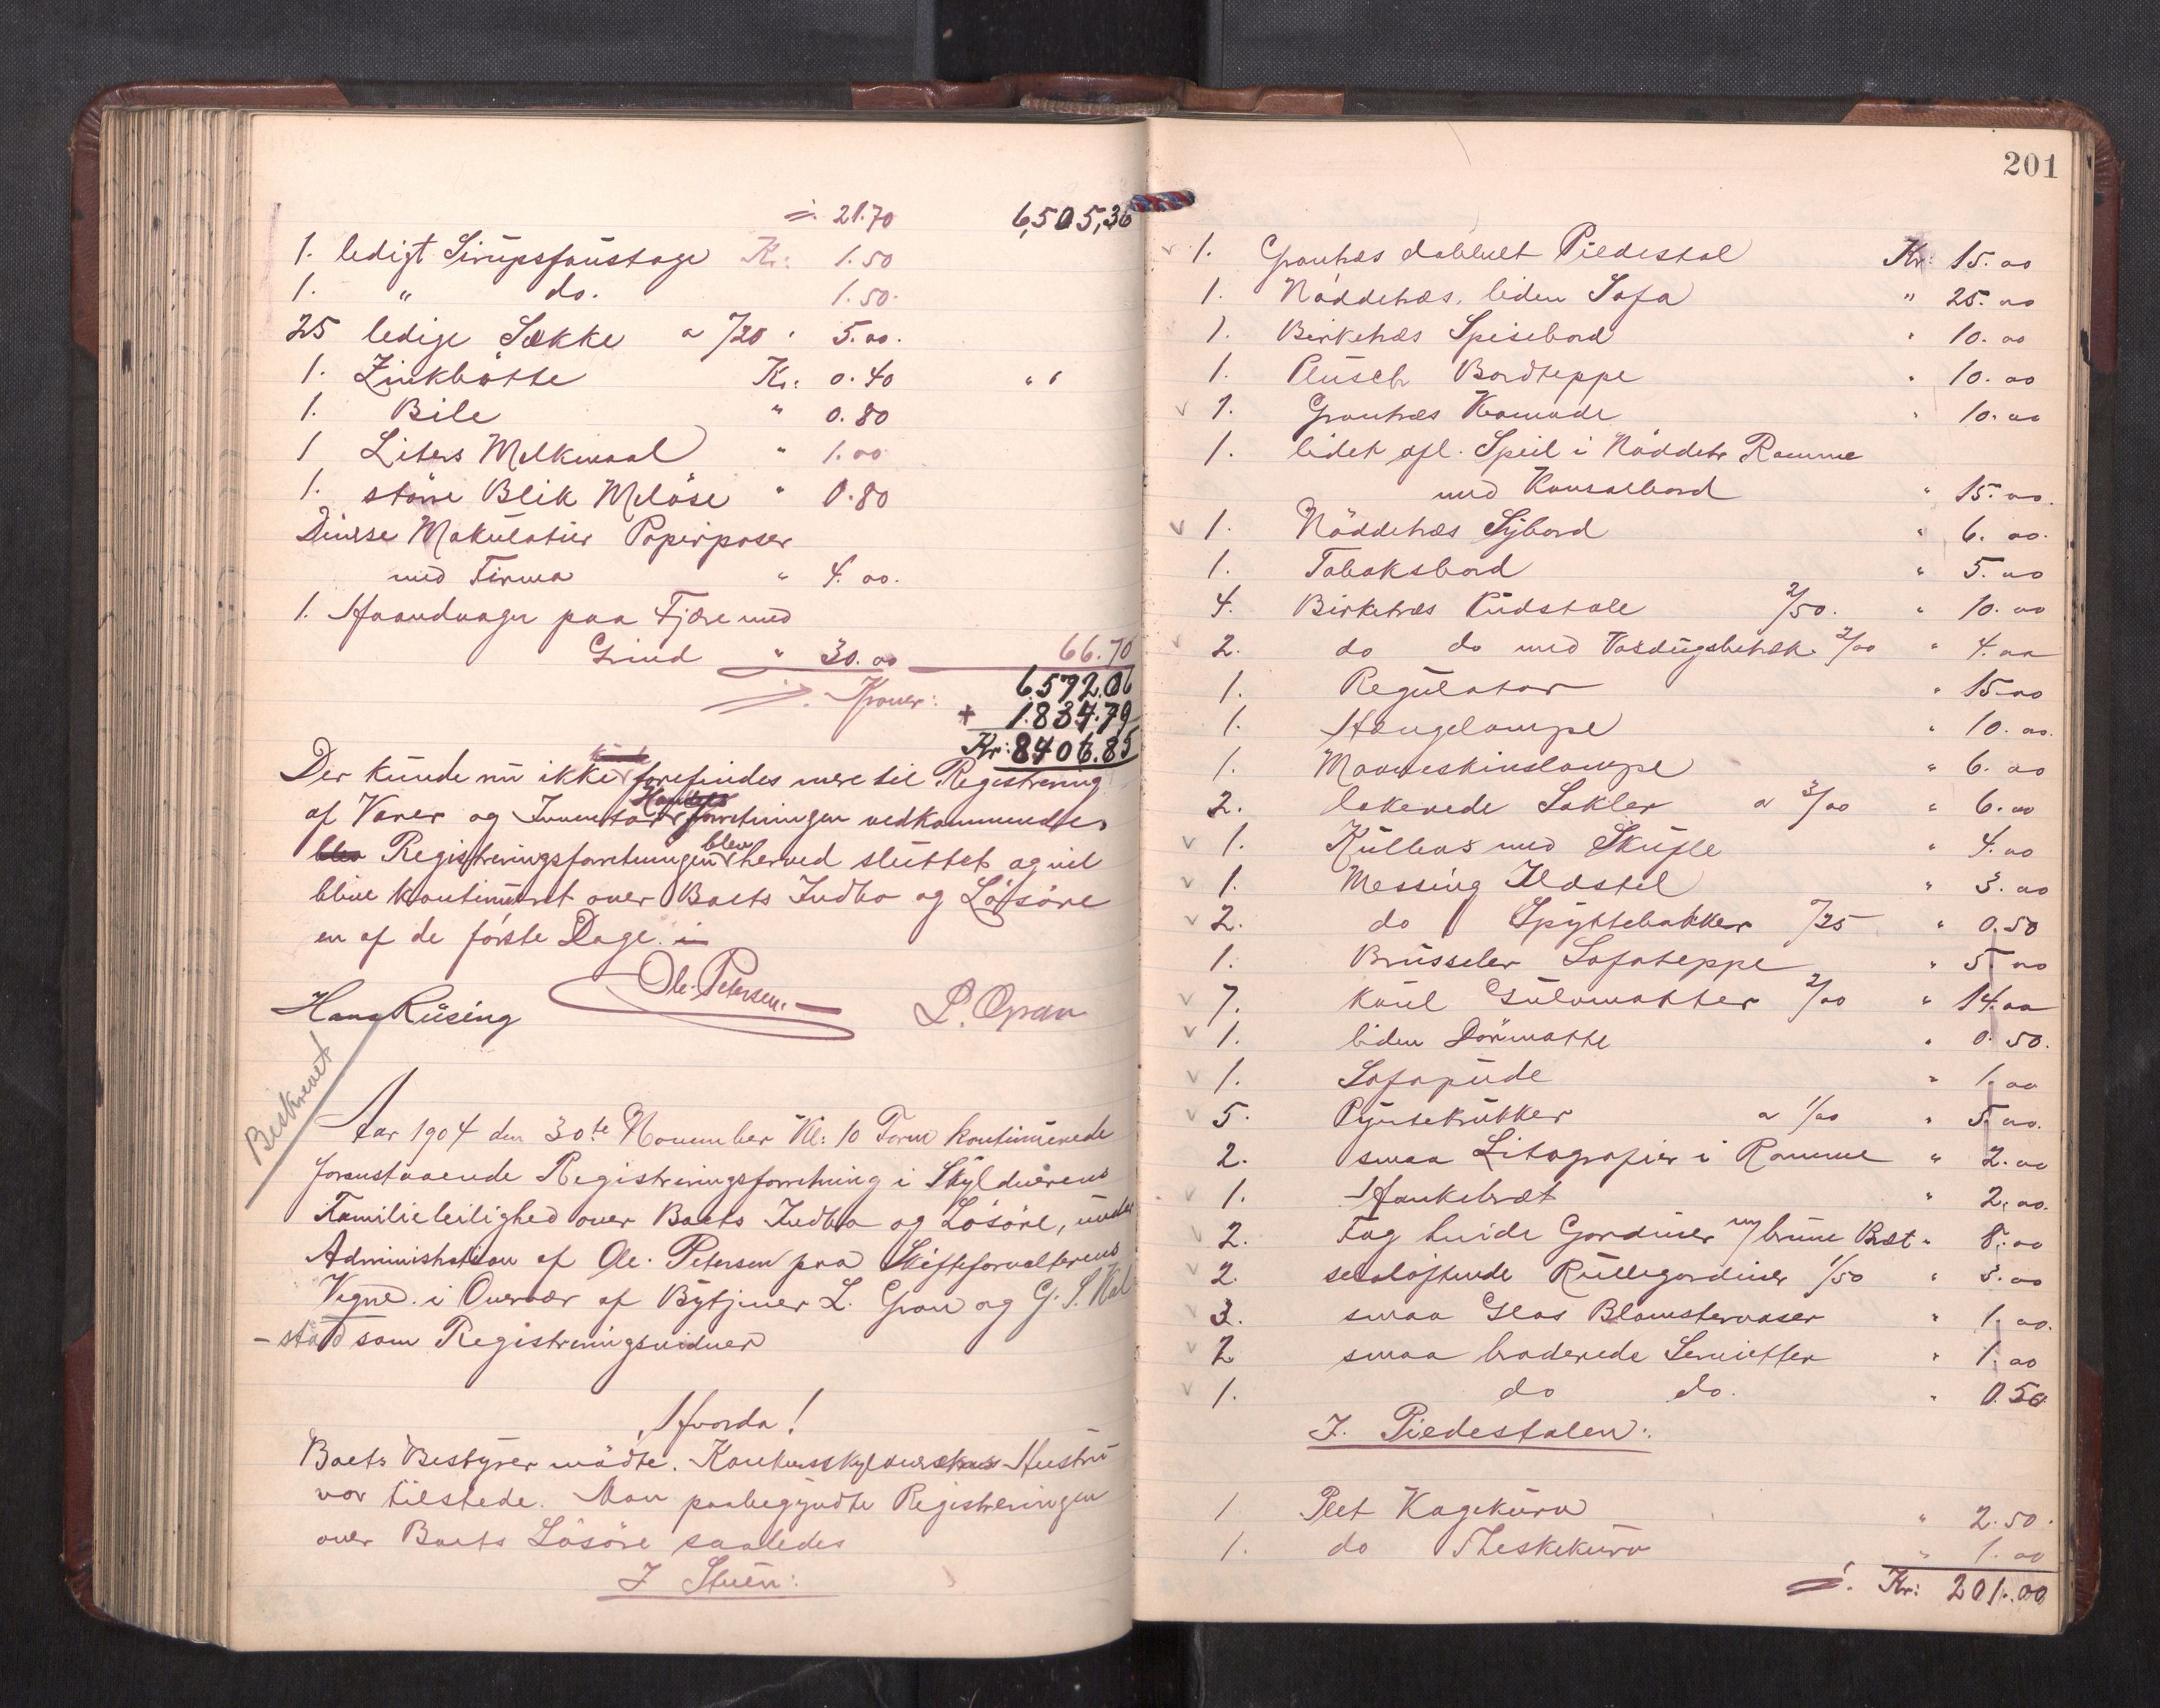 ./. 21.70 6,505,36
1. ledigt Sirupsfoustage Kr: 1.50
1. " do. 1.50.
25 ledige Sække a /20 " 5.00.
1. Zinkbøtte Kr: 0.40 " "
1. Bile " 0.80
1 Liters Melkemaal " 1.00
1. større Blik Meløse " 0.80
Diverse Makulatur Papirposer
med Firma " 4.00.
1. Haandvogn paa Fjære med
Grind " 30.00 66.70
./. Kroner: 6.572.06
+ 1.834.79
Kr: 8406.85
Der kunde nu ikke forefindes mere til Registrering
af Varer og Inventar forretningen vedkommende,
Registreringsforretningen blev herved sluttet og vil
blive kontinueret over Boets Indbo og Løsøre
en af de første Dage.
Hans Rüsing Ole. Petersen. L. Gran
Beskrevet
Aar 1904 den 30te November Kl: 10 Form kontinuerede
foranstaaende Registreringsforretning i Skyldnerens
Familieleilighed over Boets Indbo og Løsøre, under
Administration af Ole. Petersen paa Skifteforvalterens
Vegne. i Overvær af Bytjener L. Gran og G. S. Kal
-stad som Registreringsvidner
Hvorda!
Boets Bestyrer mødte. Konkursskyldnerskens Hustru
var tilstede. Man paabegyndte Registreringen
over Boets Løsøre saaledes
I Stuen:
201
1. Grantræs dobbelt Piedestal Kr: 15.00
1. Nøddetræs. liden Sofa " 25.00
1. Birketræs Spisebord " 10.00
1. Plusch Bordteppe " 10.00
1. Grantræs Komode " 10.00
1. lidet afl. Speil i Nøddetr Ramme
med Konsolbord " 15.00.
1. Nøddetræs Sybord " 6.00.
1. Tobaksbord " 5.00
4. Birketræs Rudstole 2/50. " 10.00
2. do do med Voxdugsbetræk. 2/00 " 4.00
1. Regulator " 15.00
1. Hængelampe " 10.00.
1. Maaneskinslampe " 6.00
2. lakerede Sokler a 3/00 " 6.00
1. Kulbox med Skufle " 4.00
1. Messing Ildstel " 3.00
2. do Spyttebakker /25 " 0.50
1. Brusseler Sofateppe " 5.00
7. Gulvmatter 2/00 " 14.00
1. liden Dørmatte " 0.50.
1. Sofapude " 1.00
5. Pyntekrukker a 1/00 " 5.00.
2. smaa Litografier i Ramme " 2.00
1. Hankebræt " 2.00.
2. Fag hvide Gardiner m/ brune Bræt " 8.00
2. Rullegardiner 1/50 " 3.00
3. smaa Glas Blomstervaser " 1.00.
2 smaa broderede Servietter " 1.00
1. do do. " 0.50
I. Piedestalen:
1 Plet Kagekurv " 2.50.
1. do Theskekurv " 1.00
./. Kr: 201.00